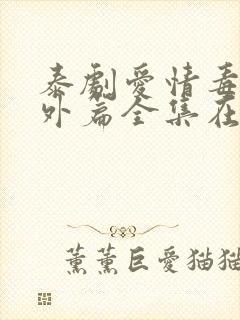 泰劇愛情毒
外篇全集在
薰薰巨愛猫猫